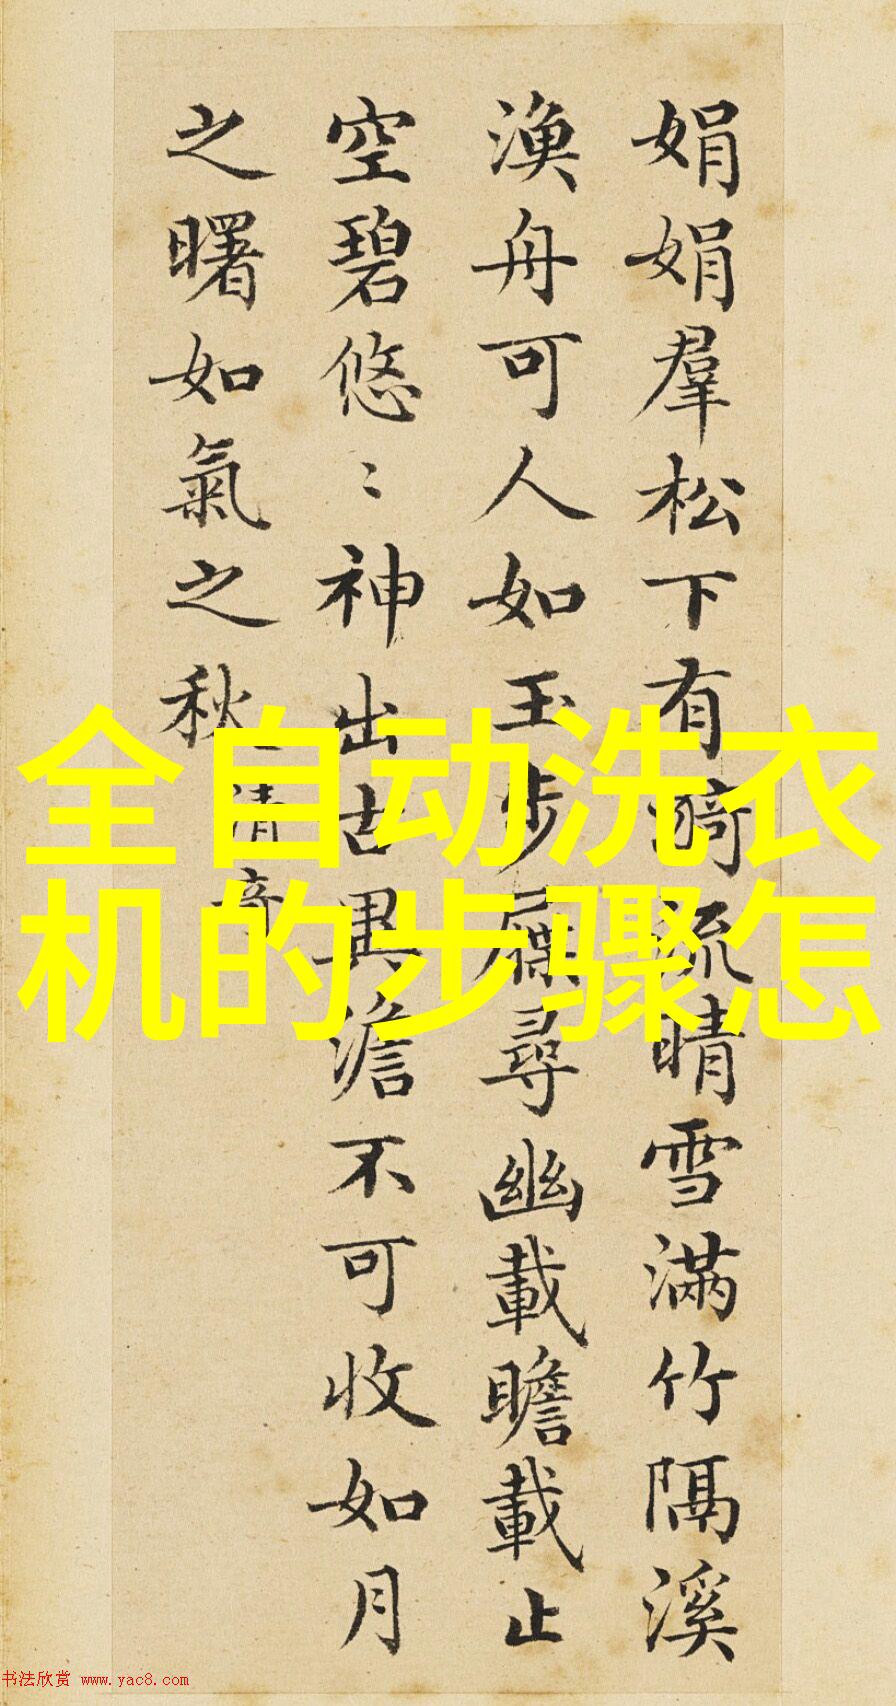 娟娟羣松下有漪流晴雪滿竹隔溪
漁舟可人如玉步屧尋幽載瞻載止
空碧悠〻神出古異澹不可收如月
之曙如氣之秋
清奇
全自动洗衣
机的步骤怎
书法欣赏 www.yac8.com